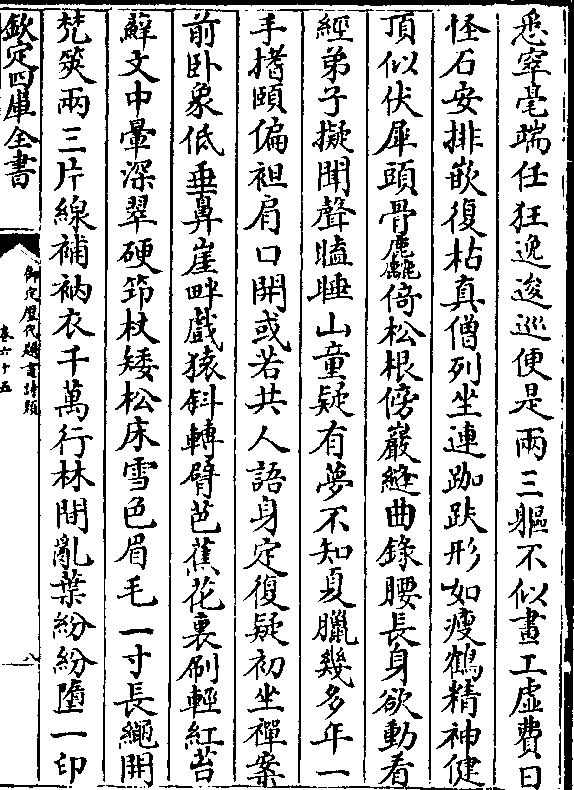 悉窣毫端任狂逸逡巡便是兩三軀不似畫工虛費日
怪石安排嵌復枯真僧列坐連跏趺形如瘦鶴精神健
頂似伏犀頭骨麤倚松根傍巖縫曲錄腰長身欲動看
經弟子擬聞聲瞌睡山童疑有夢不知夏臘幾多年一
手搘頤偏袒肩口開或若共人語身定復疑初坐禪案
前卧象低垂鼻崖畔戲猿斜轉臂芭蕉花裏刷輕紅苔
蘚文中暈深翠硬筇杖矮松床雪色眉毛一寸長繩開
梵筴兩三片線補衲衣千萬行林間亂葉紛紛墮一印
欽定四庫全書
御定歷代題畫詩類
卷六十五
八